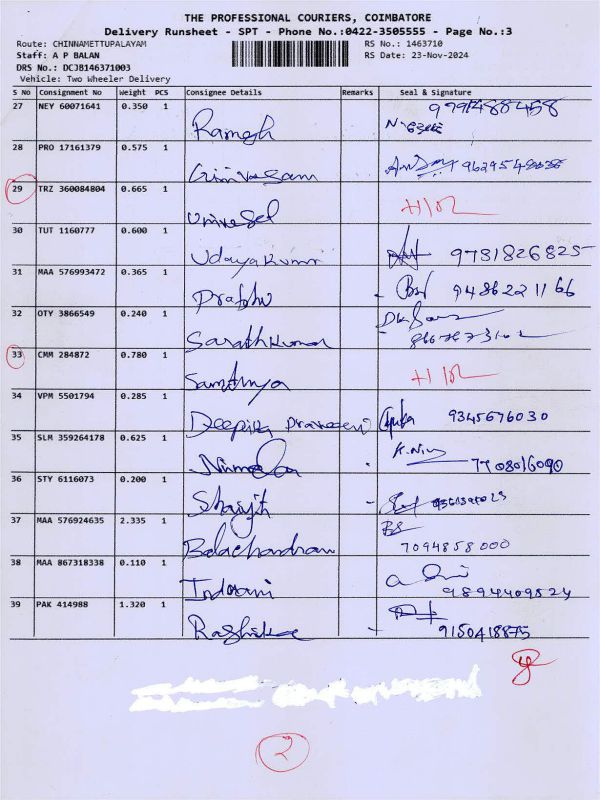 THE PROFESSIONAL COURIERS, COIMBATORE
Delivery Runsheet - SPT - Phone No.:0422-3505555 - Page No.:3
Route: CHINNAMETTUPALAYAM RS No.: 1463710
Staff: A P BALAN RS Date: 23-Nov-2024
DRS No.: DCJB146371003
Vehicle: Two Wheeler Delivery
S No Consignment No Weight PCS Consignee Details Remarks Seal & Signature
27 NEY 60071641 0.350 1 Ramesh
28 PRO 17161379 0.575 1
29 TRZ 360084804 0.665 1 Universel H/OR
30 TUT 1160777 0.600 1 Udayakumar 9781826825
31 MAA 576993472 0.365 1 Prabhu 9486221166
32 OTY 3866549 0.240 1 Sarathkumar
33 CMM 284872 0.780 1 H/OR
34 VPM 5501794 0.285 1 Deepika Praveen 9345676030
35 SLM 359264178 0.625 1 Nirmala 7708016090
36 STY 6116073 0.200 1
37 MAA 576924635 2.335 1 Balachandran BS 7094858000
38 MAA 867318338 0.110 1 Indorani 9894409524
39 PAK 414988 1.320 1 Rashika 9150418875
2